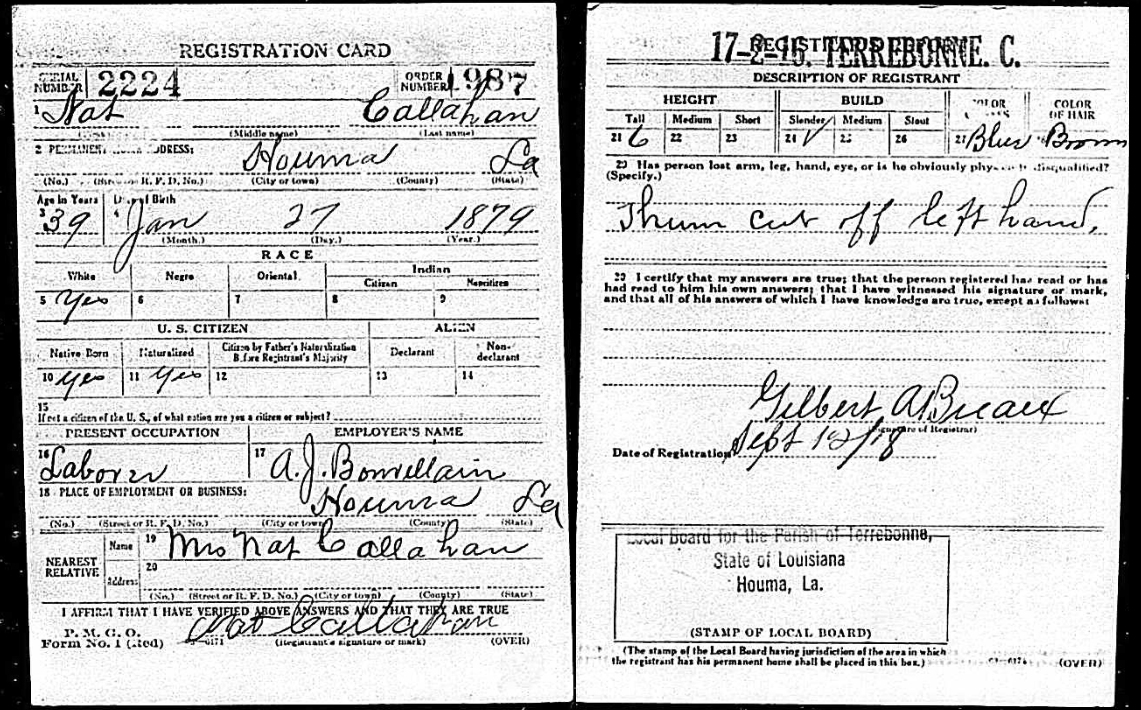 REGISTRATION CARD
SERIAL NUMBER 2224 ORDER NUMBER 1987
1 Nat Callahan
(Middle name) (Last name)
2 PERMANENT HOME ADDRESS: Houma La
(No.) (Street or R. F. D. No.) (City or town) (County) (State)
Age in Years Date of Birth
3 39 4 Jan 27 1879
(Month.) (Day.) (Year.)
RACE
White Negro Oriental Indian
Citizen Noncitizen
5 Yes 6 7 8 9
U. S. CITIZEN ALIEN
Native Born Naturalized Citizen by Father's Naturalization Before Registrant's Majority Declarant Non-declarant
10 Yes 11 Yes 12 13 14
15
If not a citizen of the U. S., of what nation are you a citizen or subject?
PRESENT OCCUPATION EMPLOYER'S NAME
16 Laborer 17 A. J. Bonvillain
18 PLACE OF EMPLOYMENT OR BUSINESS:
Houma La
(No.) (Street or R. F. D. No.) (City or town) (County) (State)
NEAREST RELATIVE Name 19 Mrs Nat Callahan
Address 20
(No.) (Street or R. F. D. No.) (City or town) (County) (State)
I AFFIRM THAT I HAVE VERIFIED ABOVE ANSWERS AND THAT THEY ARE TRUE
P. M. G. O.
Form No. 1 (Red) Nat Callahan
(Registrant's signature or mark) (OVER)
REGISTRAR'S REPORT
17-2-15. TERREBONNE. C.
DESCRIPTION OF REGISTRANT
HEIGHT BUILD COLOR OF EYES COLOR OF HAIR
Tall Medium Short Slender Medium Stout
21 6 22 23 24 √ 25 26 27 Blue 28 Brown
29 Has person lost arm, leg, hand, eye, or is he obviously physically disqualified?
(Specify.)
Thum cut off left hand.
30 I certify that my answers are true; that the person registered has read or has
had read to him his own answers; that I have witnessed his signature or mark,
and that all of his answers of which I have knowledge are true, except as follows:
Gilbert A Breaux
(Signature of Registrar)
Date of Registration Sept 12/18
Local Board for the Parish of Terrebonne,
State of Louisiana
Houma, La.
(STAMP OF LOCAL BOARD)
(The stamp of the Local Board having jurisdiction of the area in which
the registrant has his permanent home shall be placed in this box.) (OVER)